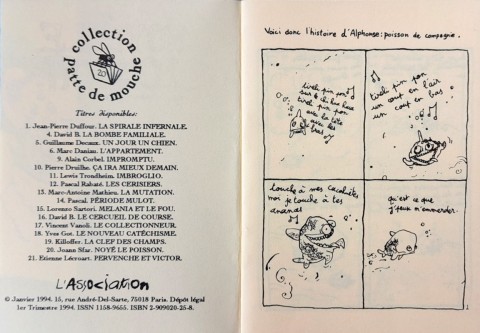 collection
patte de mouche
Titres disponibles:
1. Jean-Pierre Duffour. LA SPIRALE INFERNALE.
4. David B. LA BOMBE FAMILIALE.
5. Guillaume Decaux. UN JOUR UN CHIEN.
6. Marc Daniau. L'APPARTEMENT.
9. Alain Corbel. IMPROMPTU.
10. Pierre Druilhe. ÇA IRA MIEUX DEMAIN.
11. Lewis Trondheim. IMBROGLIO.
12. Pascal Rabaté. LES CERISIERS.
13. Marc-Antoine Mathieu. LA MUTATION.
14. Pascal. PÉRIODE MULOT.
15. Lorenzo Sartori. MELANIA ET LE FOU.
16. David B. LE CERCUEIL DE COURSE.
17. Vincent Vanoli. LE COLLECTIONNEUR.
18. Yves Got. LE NOUVEAU CATÉCHISME.
19. Killoffer. LA CLEF DES CHAMPS.
20. Joann Sfar. NOYÉ LE POISSON.
21. Etienne Lécroart. PERVENCHE ET VICTOR.
L'ASSOCIATION
© Janvier 1994. 15, rue André-Del-Sarte, 75018 Paris. Dépôt légal
1er Trimestre 1994. ISSN 1158-9655. ISBN 2-909020-25-8.
Voici donc l'histoire d'Alphonse: poisson de compagnie.
pin pon
tireli pin pon
avec la tête
avec les
bras
tireli pin pon
un coup en l'air
un coup en bas
touche à mes cacahètes
moi je touche à tes
ananas
qu'est ce que
j'peux m'emmerder.
1